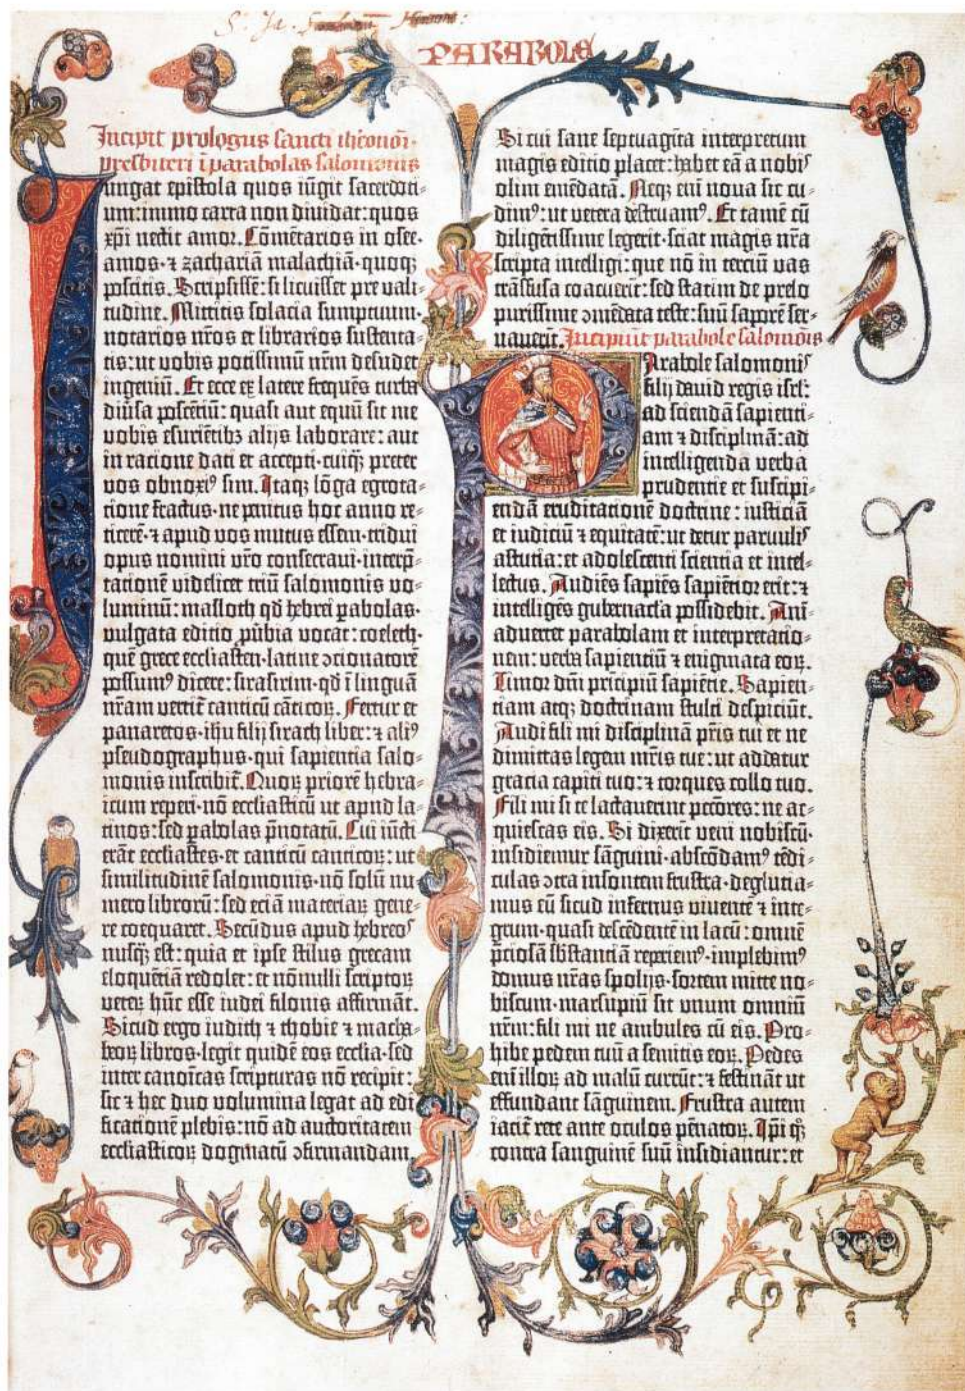 PARABOLE
Incipit prologus sancti iheronimi
presbiteri ī parabolas salomonis
Iungat epistola quos iūgit sacerdoti-
um: immo carta non diuidat: quos
xp̄i nectit amor. Cōmētarios in osee·
amos· ⁊ zachariā malachiā· quoq̨
poscitis. Scripsissē: si licuisset pre vali-
tudine. Mittitis solacia sumptuum·
notarios nr̄os et librarios sustenta-
tis: ut vobis potissimū nr̄m desudet
ingeniū. Et ecce ex latere frequēs turba
diūsa poscētiū: quasi aut equū sit me
vobis esuriētibꝫ alijs laborare: aut
in racione dati et accepti· cuiq̄ꝫ preter
vos obnoxiꝰ sim. Itaqꝫ lōga egrota-
tione fractus· ne penitus hoc anno re-
ticerē· ⁊ apud vos mutus essem· tridui
opus nomini vr̄o consecraui· interp̄-
tationē videlicet triū salomonis vo-
luminū: masloth qd̄ hebrei ꝑabolas·
vulgata editio ꝓūbia vocat: coeleth·
quē grece ecclīasten· latine ↄcionatorē
possumꝰ dicere: sirasirim· qd̄ ī linguā
nr̄am vertit᷑ canticū cāticoꝝ. Fertur et
panaretos· ihū filij sirach liber: ⁊ aliꝰ
pseudographus· qui sapientia salo-
monis inscribit᷑. Quoꝝ priorē hebra-
icum reperi· nō ecclīasticū ut apud la-
tinos: sed ꝑabolas p̄notatū. Cui iūcti
erāt ecclīastes· et canticū canticoꝝ: ut
similitudinē salomonis· nō solū nu
mero librorū: sed eciā materiaꝝ gene-
re coequaret. Secūdus apud hebreos
nusq̄ꝫ est: quia et ipse stilus grecam
eloquētiā redolet: et nōnulli scriptoꝝ
veteꝝ hūc esse iudei filonis affirmāt.
Sicud ergo iudith ⁊ thobie ⁊ macha-
beoꝝ libros· legit quidē eos ecclīa· sed
inter canoīcas scripturas nō recipit:
sic ⁊ hec duo volumina legat ad edi
ficationē plebis: nō ad auctoritatem
ecclīasticoꝝ dogmatū ↄfirmandam.
Si cui sane septuagīta interpretum
magis editio placet: habet eā a nobis
olim emēdatā. Neqꝫ eni noua sic cu-
dimꝰ: ut vetera destruamꝰ. Et tamē cū
diligētissime legerit· sciat magis nr̄a
scripta intelligi: que nō in terciū vas
trāsfusa coacuerīt: sed statim de prelo
purissime ↄmēdata teste: suū saporē ser-
uauerīt. Incipiunt parabole salomōis
Parabole salomonis
filij dauid regis isrl̄:
ad sciendā sapienti-
am ⁊ disciplinā: ad
intelligenda verba
prudentie et suscipi-
endā eruditationē doctrine: iusticiā
et iudiciū ⁊ equitatē: ut detur paruulis
astutia: et adolescenti scientia et intel-
lectus. Audiēs sapiēs sapiētior erit: ⁊
intelligēs gubernacl̄a possidebit. Ani-
aduertet parabolam et interpretatio-
nem: verba sapientiū ⁊ enigmata eoꝝ.
Timor dn̄i principiū sapiētie. Sapien-
tiam atqꝫ doctrinam stulti despiciūt.
Audi fili mi disciplinā pr̄is tui et ne
dimittas legem mr̄is tue: ut addatur
gracia capiti tuo: ⁊ torques collo tuo.
Fili mi si te lactauerint pctōres: ne ac-
quiescas eis. Si dixerīt veni nobiscū·
insidiemur sāguini· abscōdamꝰ tēdi-
culas ↄtra insontem frustra· deglutia-
mus eū sicud infernus viuentē ⁊ inte-
grum· quasi descēdentē in lacū: omnē
p̄ciosā sb̄stantiā reperiemꝰ· implebimꝰ
domus nr̄as spolijs· sortem mitte no-
biscum· marsupiū sit vnum omniū
nr̄m: fili mi ne ambules cū eis. Pro-
hibe pedem tuū a semitis eoꝝ. Pedes
eni illoꝝ ad malū currūt: ⁊ festināt ut
effundant sāguinem. Frustra autem
iacit᷑ rete ante oculos pēnatoꝝ. Ip̄i qꝫ
contra sanguinē suū insidiantur: et